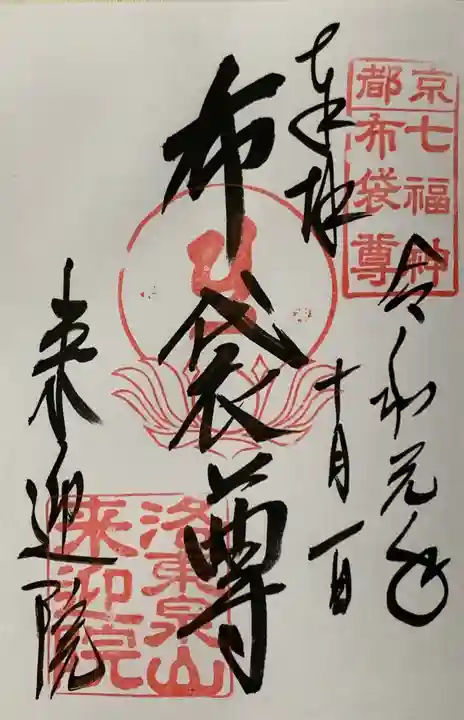 京七福神
都布袋尊
奉拝
令和元年
十月一日
布袋尊
来迎院
洛東泉山
来迎院